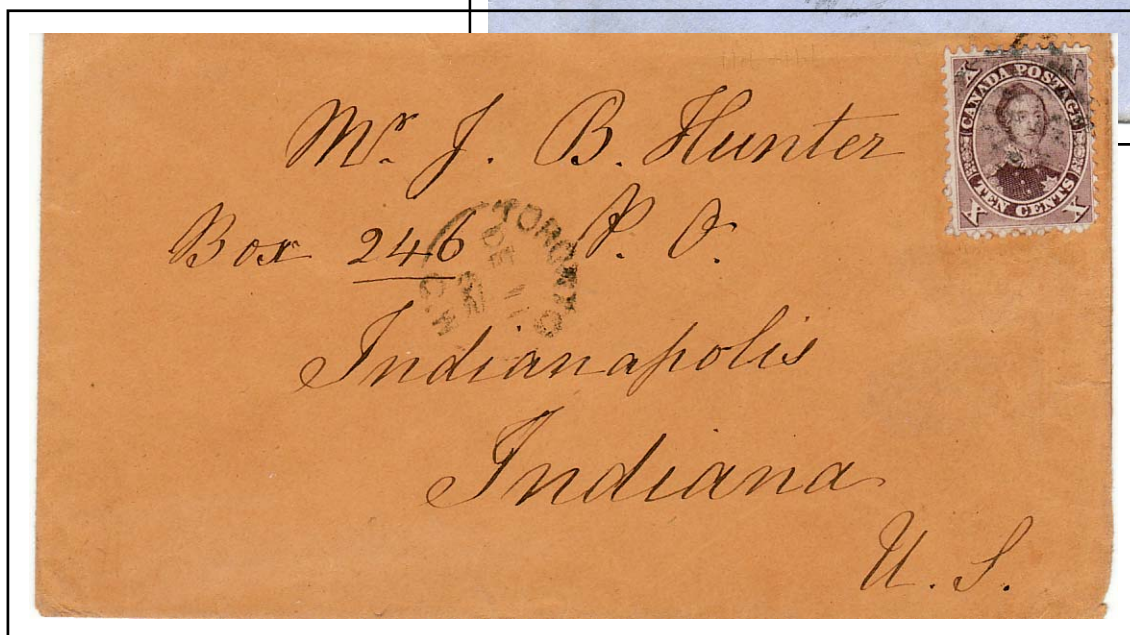 X X
CANADA POSTAGE
TEN CENTS
X X
Mr. J. B. Hunter
Box 246 P. O.
TORONTO
DE 11
C.W
Indianapolis
Indiana
U. S.